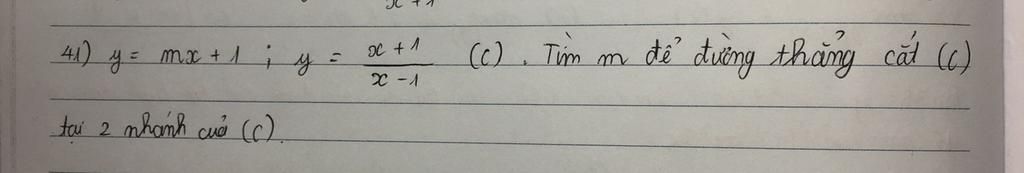 41) y = mx + 1 ; y = \frac{x+1}{x-1} (C). Tìm m để đường thẳng cắt (C)
tại 2 nhánh của (C).